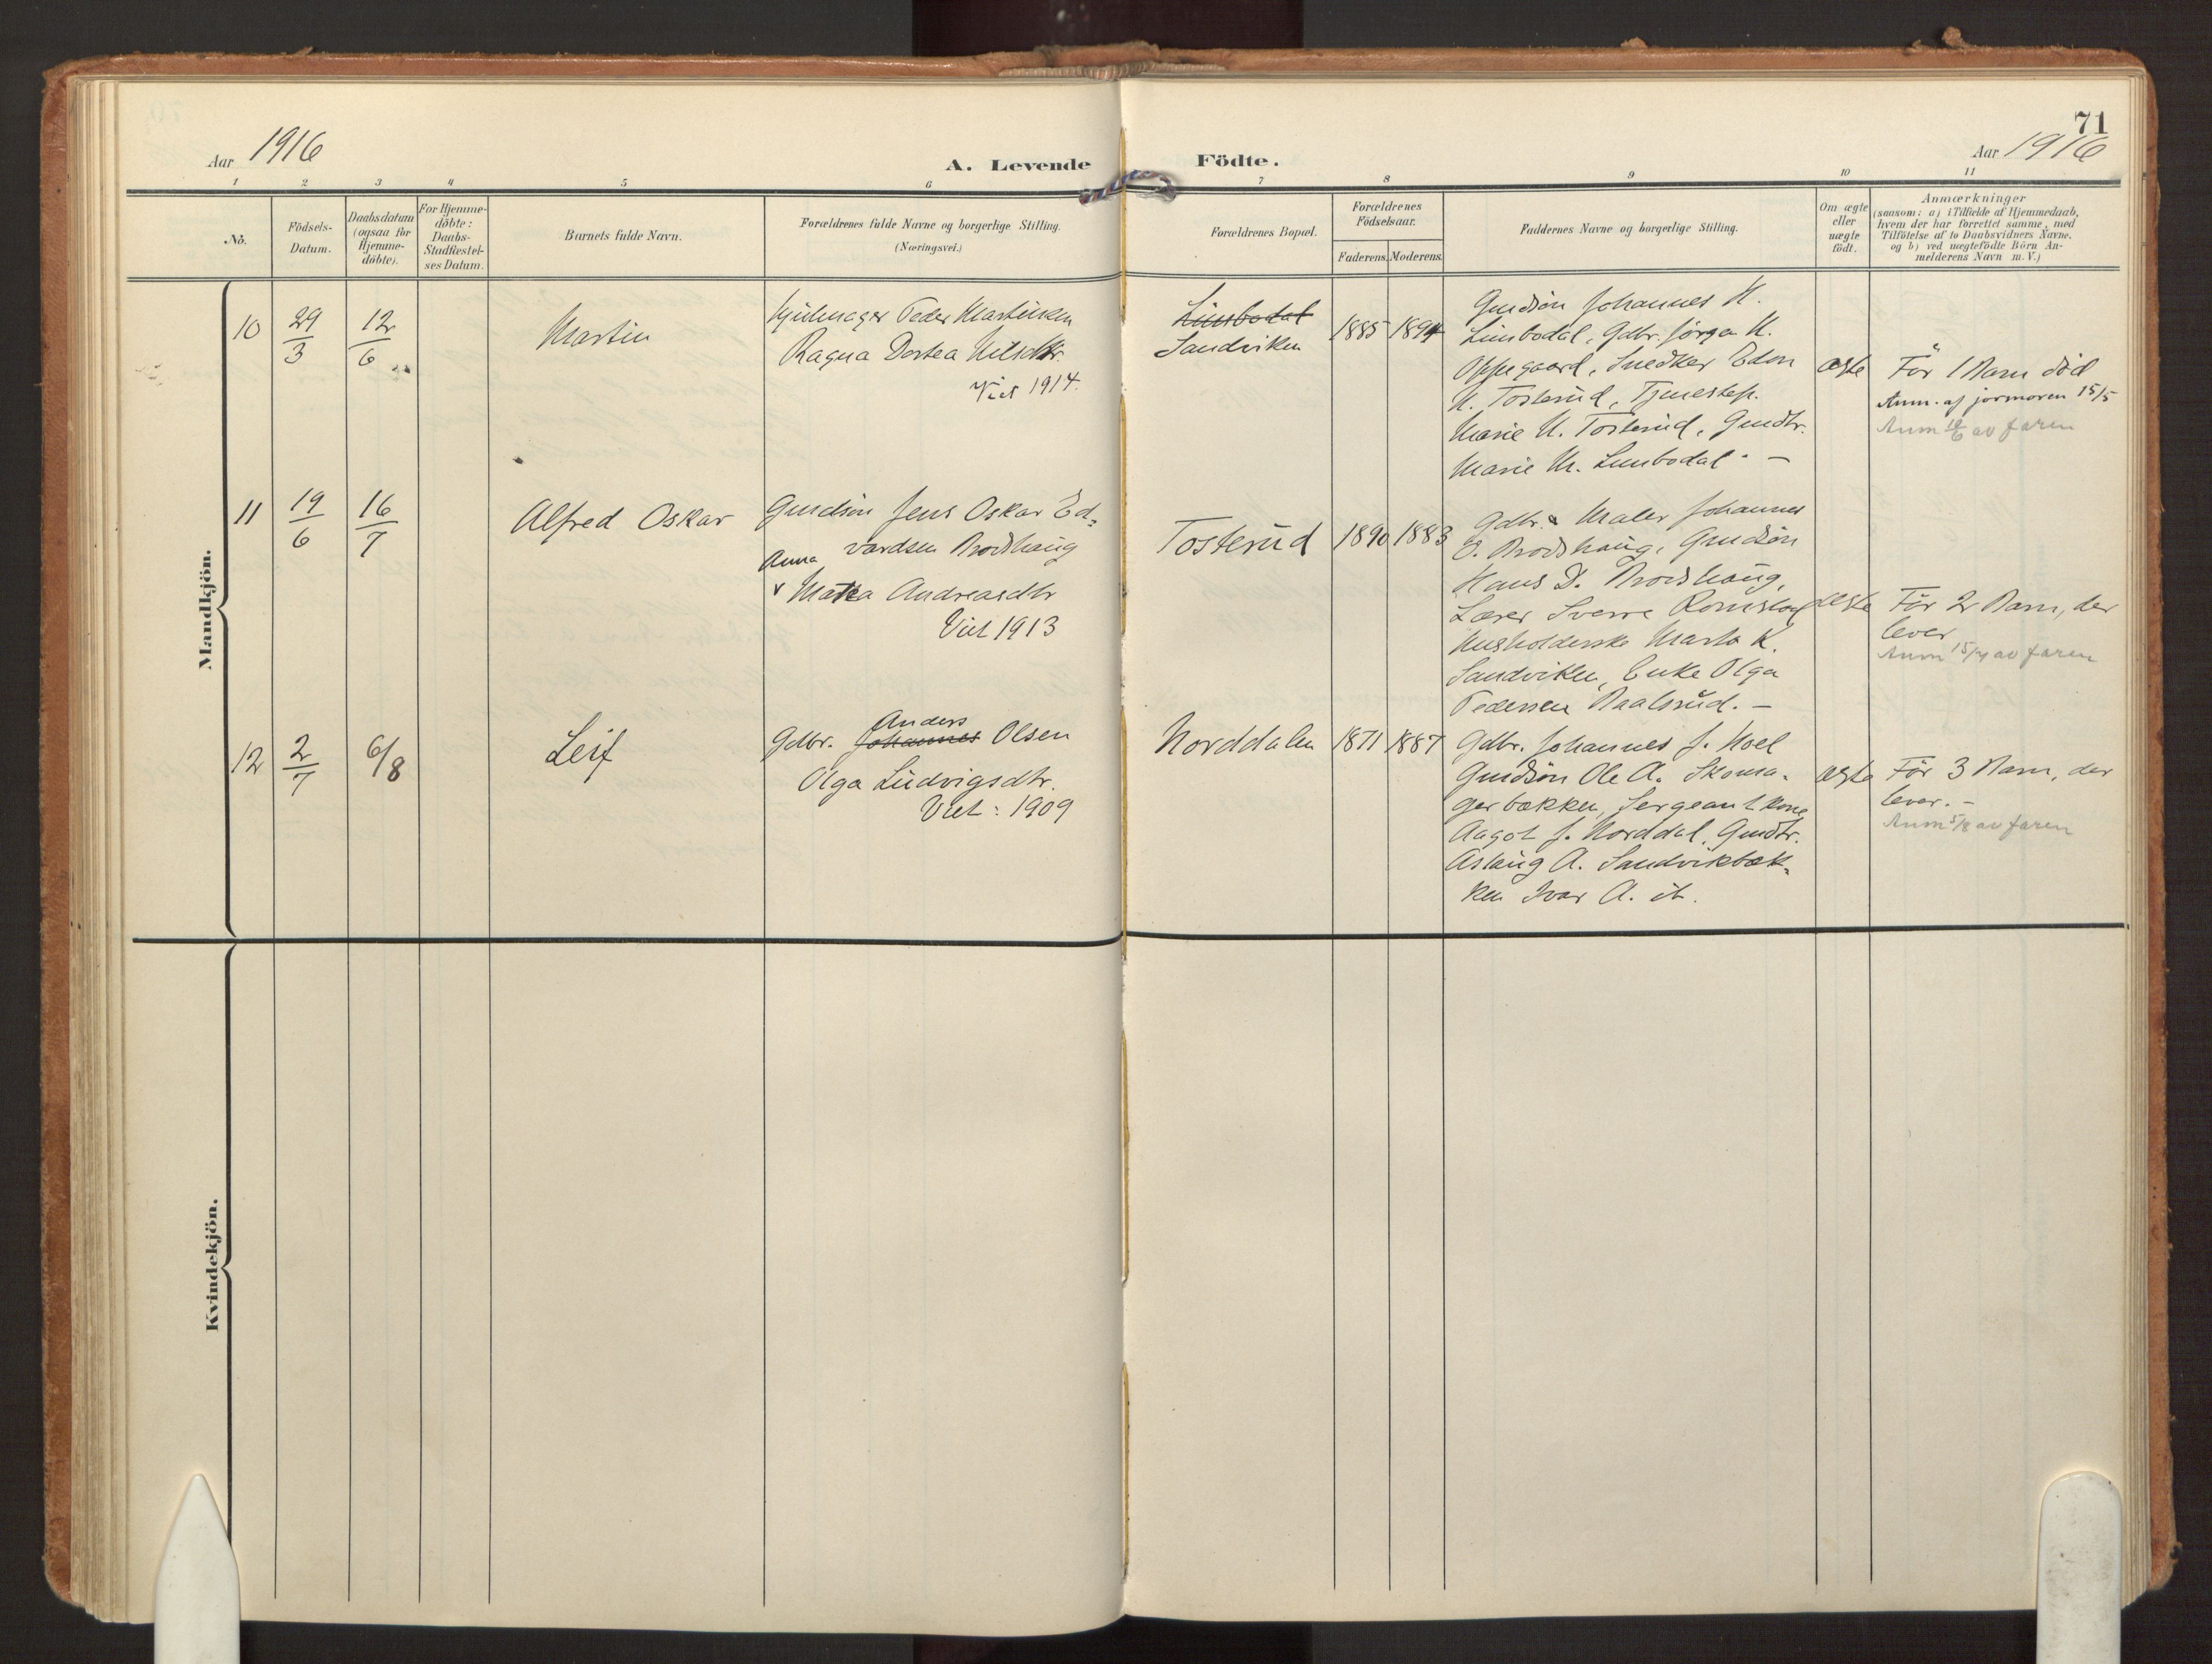 71
Aar 1916
A. Levende Födte.
Aar 1916
1 2 3 4 5 6 7 8 9 10 11
No.
Födsels-
Datum.
Daabsdatum
(ogsaa for
Hjemme-
döbte).
For Hjemme-
döbte:
Daabs-
Stadfestel-
ses Datum.
Barnets fulde Navn.
Forældrenes fulde Navne og borgerlige Stilling.
(Næringsvei.)
Forældrenes Bopæl.
Forældrenes
Födselsaar.
Faderens. Moderens.
Faddernes Navne og borgerlige Stilling.
Om ægte
eller
uægte
födt.
Anmærkninger
(saasom: a) i Tilfælde af Hjemmedaab,
hvem der har forrettet samme, med
Tilföielse af to Daabsvidners Navne.
og b) ved uægtefödte Börn An-
melderens Navn m. V.)
Mandkjön.
10
29/3
12/6
Martin
Hjulmager Peder Martinsen
Ragna Dortea Nilsdtr.
Viet 1914.
Limbodal
Sandviken
1885 1894
Gmdsön Johannes H.
Limbodal, Gdbr. Jörgen H.
Oppegaard, Snedker Edon
H. Tosterud, Tjenestep.
Marie H. Tosterud, Gmdtr.
Marie M. Limbodal. —
ægte
För 1 Barn död
Anm. af jormoren 15/5
Anm 10/6 av faren
11
19/6
16/7
Alfred Oskar
Gmdsön Jens Oskar Ed-
vardsen Brodshaug
Anna
v Matea Andreasdtr
Viet 1913
Tosterud
1890 1883
Gdbr. & Maler Johannes
E. Brodshaug, Gmdsön
Hans D. Brodshaug,
Lærer Sverre Romstad
Husholderske Marta K.
Sandviken, Enke Olga
Pedersen Baalsrud. —
ægte
För 2 Barn, der
lever
Anm 15/7 av faren
12
2/7
6/8
Leif
Anders
Gdbr. Johannes Olsen
Olga Ludvigsdtr.
Viet: 1909
Norddalen
1871 1887
Gdbr. Johannes J. Hoel
Gmdsön Ole A. Skoma-
gerbækken, Sergeant kone
Aagot J. Norddal, Gmdtr.
Aslaug A. Sandvikbæk-
ken Ivar A. ib.
ægte
För 3 Barn, der
lever. —
Anm 5/8 av faren
Kvindekjön.